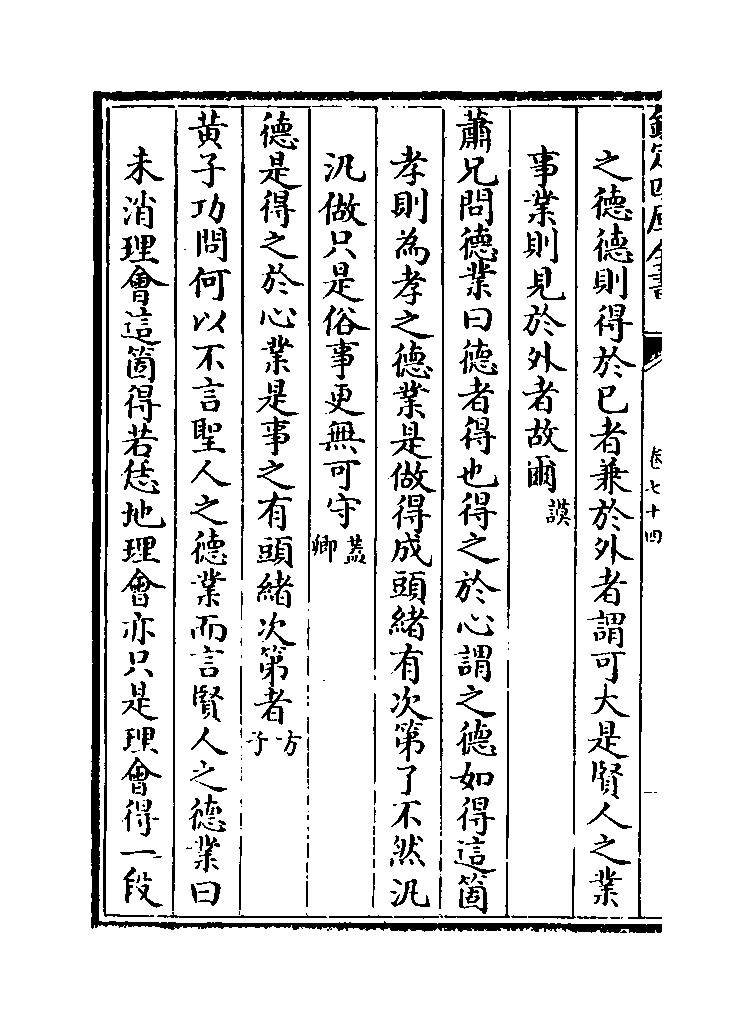 欽定四庫全書
卷七十四
之德德則得於已者兼於外者謂可大是賢人之業
事業則見於外者故爾謨
蕭兄問德業曰德者得也得之於心謂之德如得這箇
孝則為孝之德業是做得成頭緒有次第了不然汎
汎做只是俗事更無可守蓋卿
德是得之於心業是事之有頭緒次第者方子
黃子功問何以不言聖人之德業而言賢人之德業曰
未消理會這箇得若恁地理會亦只是理會得一段